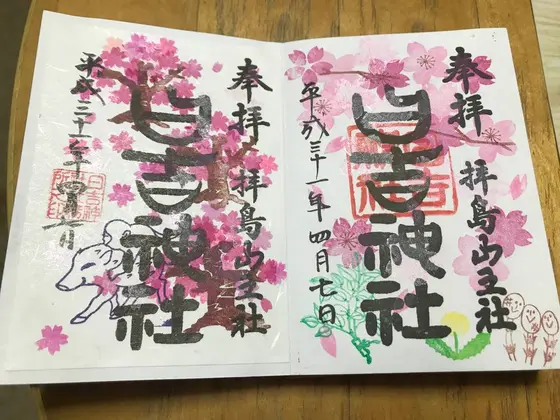 奉拝
拝島山王社
日吉神社
平成三十一年四月七日
奉拝
拝島山王社
日吉神社
平成三十一年四月七日